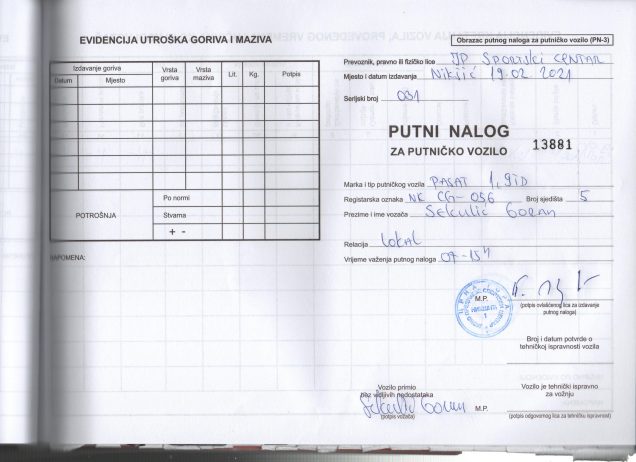 EVIDENCIJA UTROŠKA GORIVA I MAZIVA
Izdavanje goriva
Datum
Mjesto
Vrsta goriva
Vrsta maziva
Lit.
Kg.
Potpis
POTROŠNJA
Po normi
Stvarna
+ -
NAPOMENA:
Obrazac putnog naloga za putničko vozilo (PN-3)
Prevoznik, pravno ili fizičko lice JP SPORTSKI CENTAR
Mjesto i datum izdavanja Nikšić 19.02.2021
Serijski broj 031
PUTNI NALOG
ZA PUTNIČKO VOZILO 13881
Marka i tip putničkog vozila PASAT 1,9TD
Registarska oznaka NK CG-056 Broj sjedišta 5
Prezime i ime vozača Sekulić Goran
Relacija LOKAL
Vrijeme važenja putnog naloga 07-15h
M.P.
(potpis ovlašćenog lica za izdavanje
putnog naloga)
Broj i datum potvrde o
tehničkoj ispravnosti vozila
Vozilo primio
bez vidljivih nedostataka
Sekulić Goran M.P.
(potpis vozača)
Vozilo je tehnički ispravno
za vožnju
(potpis odgovornog lica za tehničku ispravnost)